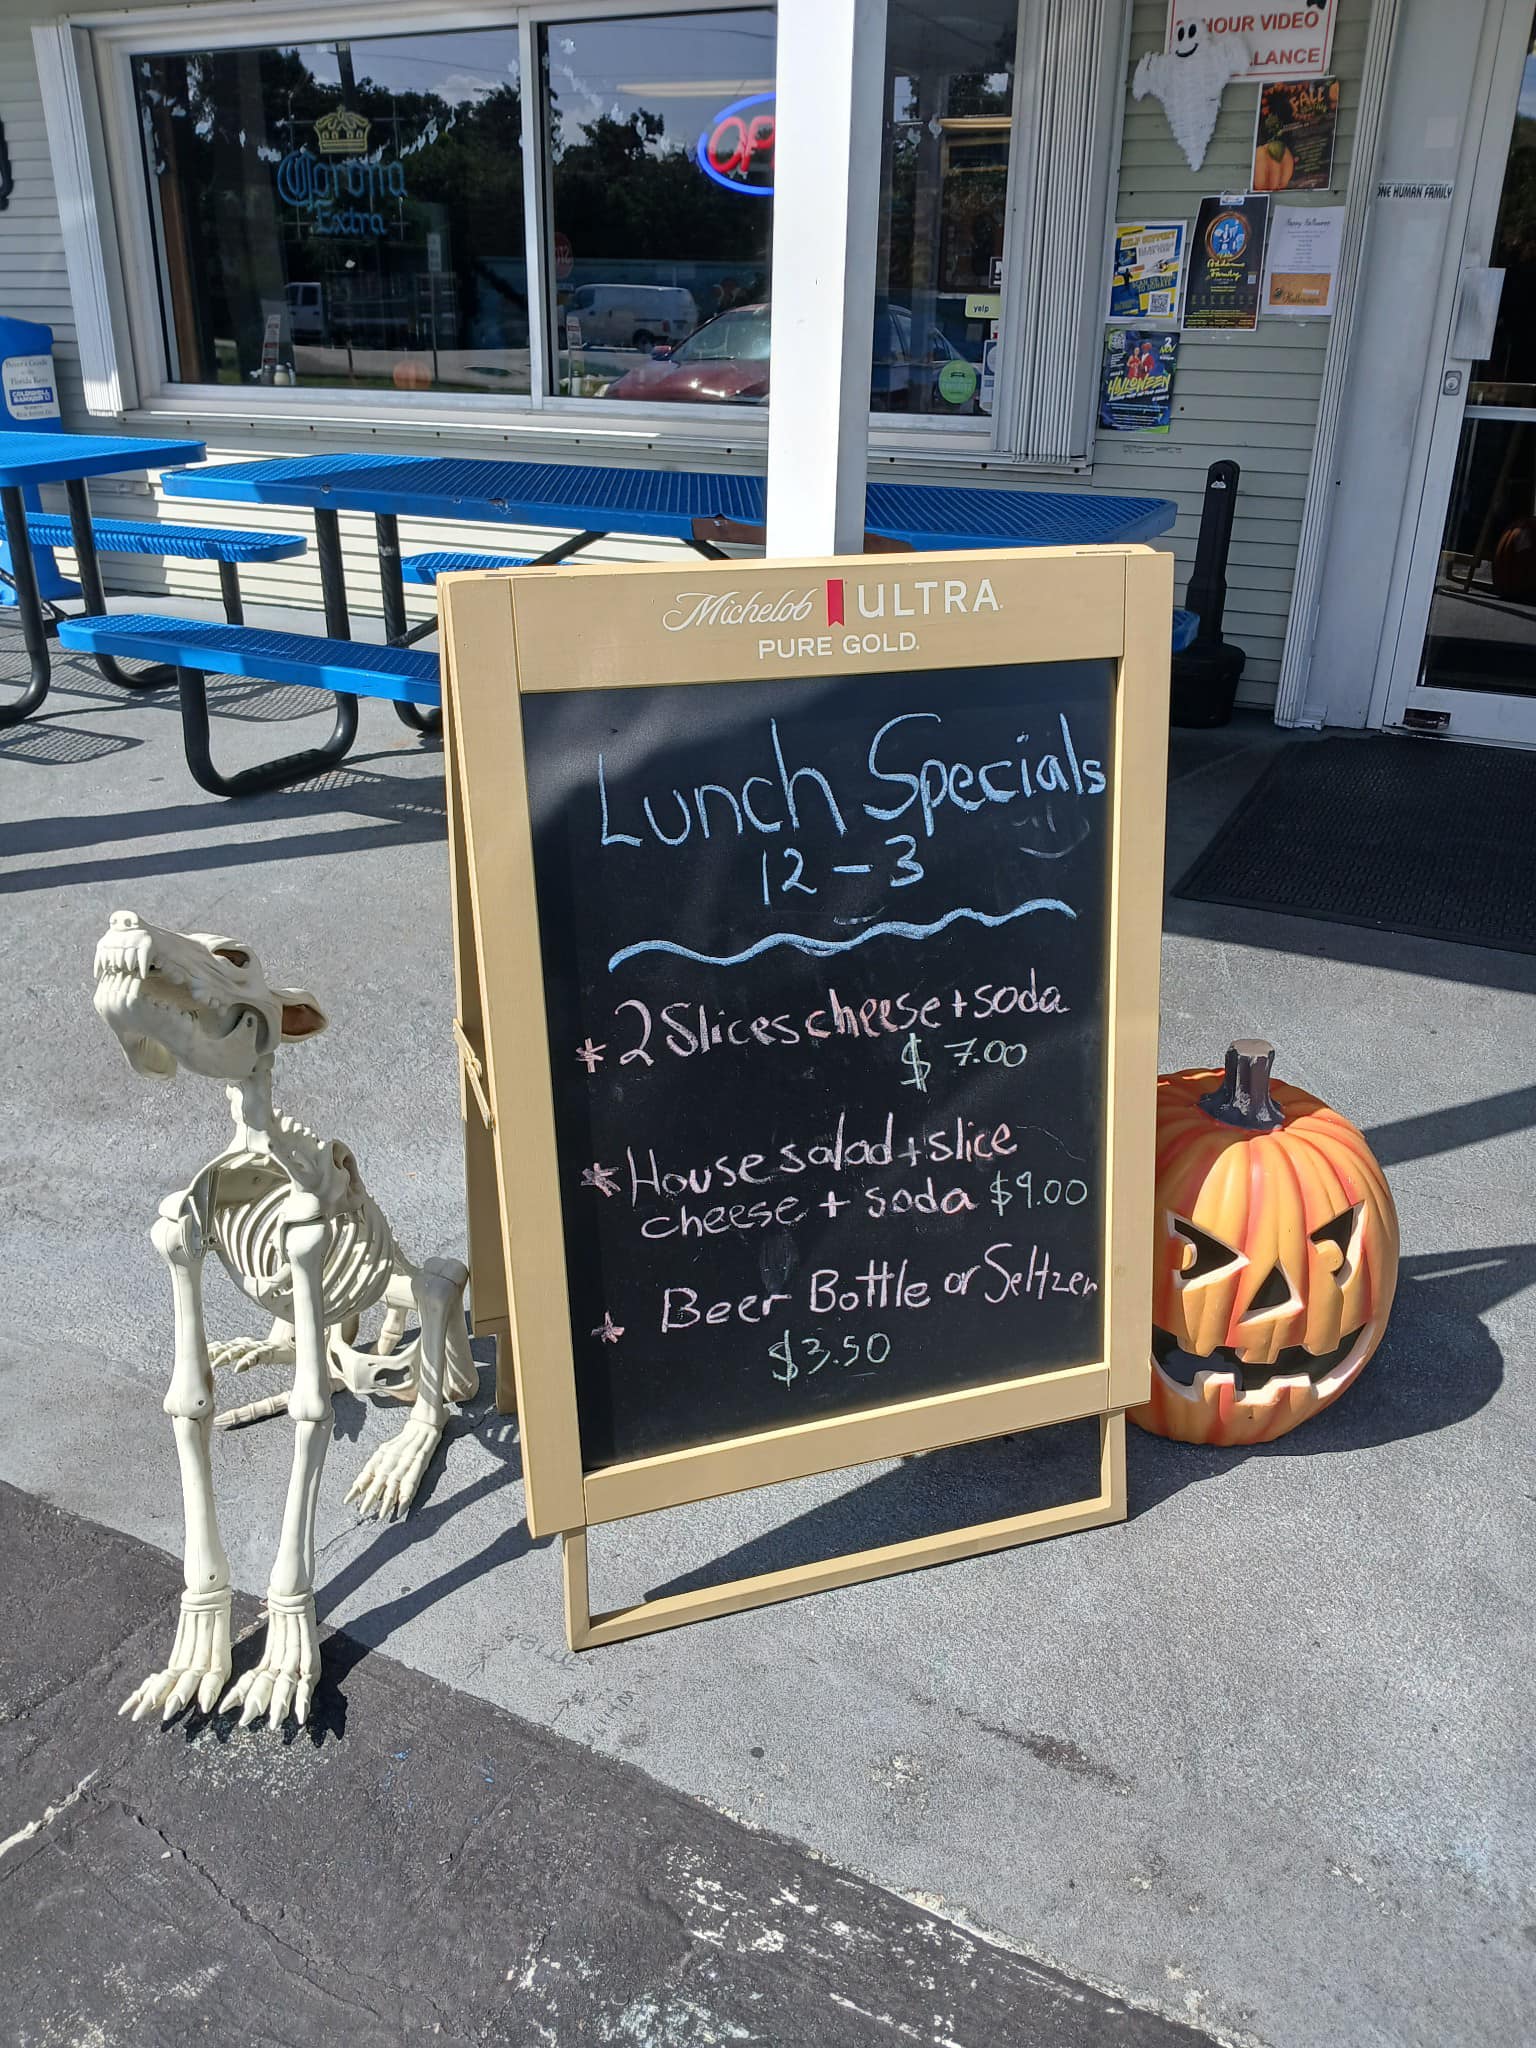 HOUR VIDEO
LANCE
FALL
Corona
Extra
OP
ONE HUMAN FAMILY
Happy Halloween
Addams
Family
yelp
HALLOWEEN
Florida Keys
COLDWELL
BANKER
Michelob ULTRA
PURE GOLD.
Lunch Specials
12 - 3
* 2 Slices cheese + soda
$ 7.00
* House salad + slice
cheese + soda $9.00
* Beer Bottle or Seltzer
$3.50